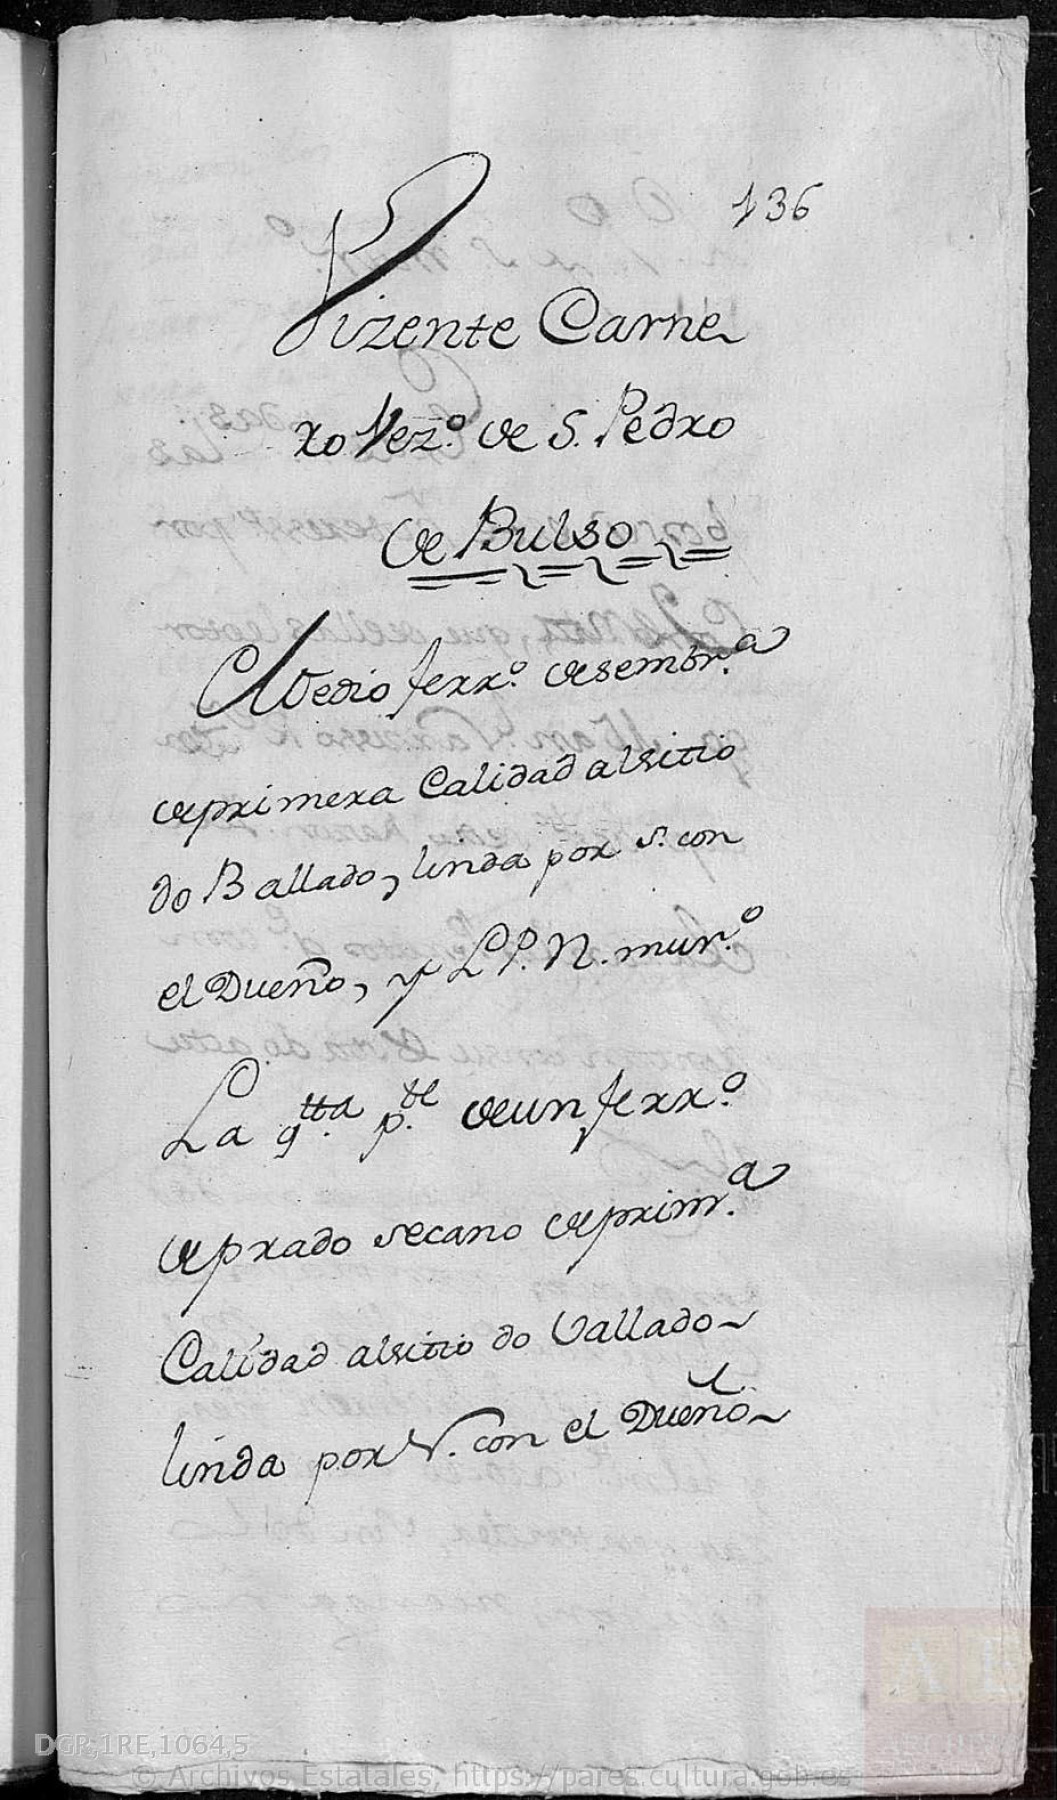 136
Vizente Carne
ro Vez.º de S. Pedro
de Bulso
Medio ferr.º de sembr.ª
de primera Calidad al sitio
do Ballado, linda por S. con
el Dueño, y L. P. N. mur.º
La q.tta p.te de un ferr.º
de prado secano de prim.ª
Calidad al sitio do Vallado
linda por N. con el Dueño
DGP,1RE,1064,5
© Archivos Estatales, https://pares.cultura.gob.es